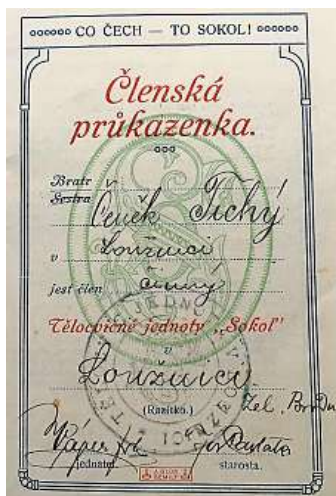 CO ČECH — TO SOKOL!
Členská
průkazenka.
Bratr
Sestra
Čeněk Tichý
v Loužnici
jest člen činný
Tělocvičné jednoty „Sokol"
v
Loužnici
(Razítko.) Žel. Brodu
jednatel. starosta.